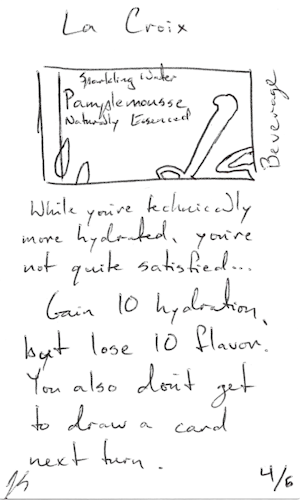 La Croix
Sparkling Water
Pamplemousse
Naturally Essenced
Beverage
While you're technically
more hydrated, you're
not quite satisfied...
Gain 10 hydration,
but lose 10 flavor.
You also don't get
to draw a card
next turn.
4/6